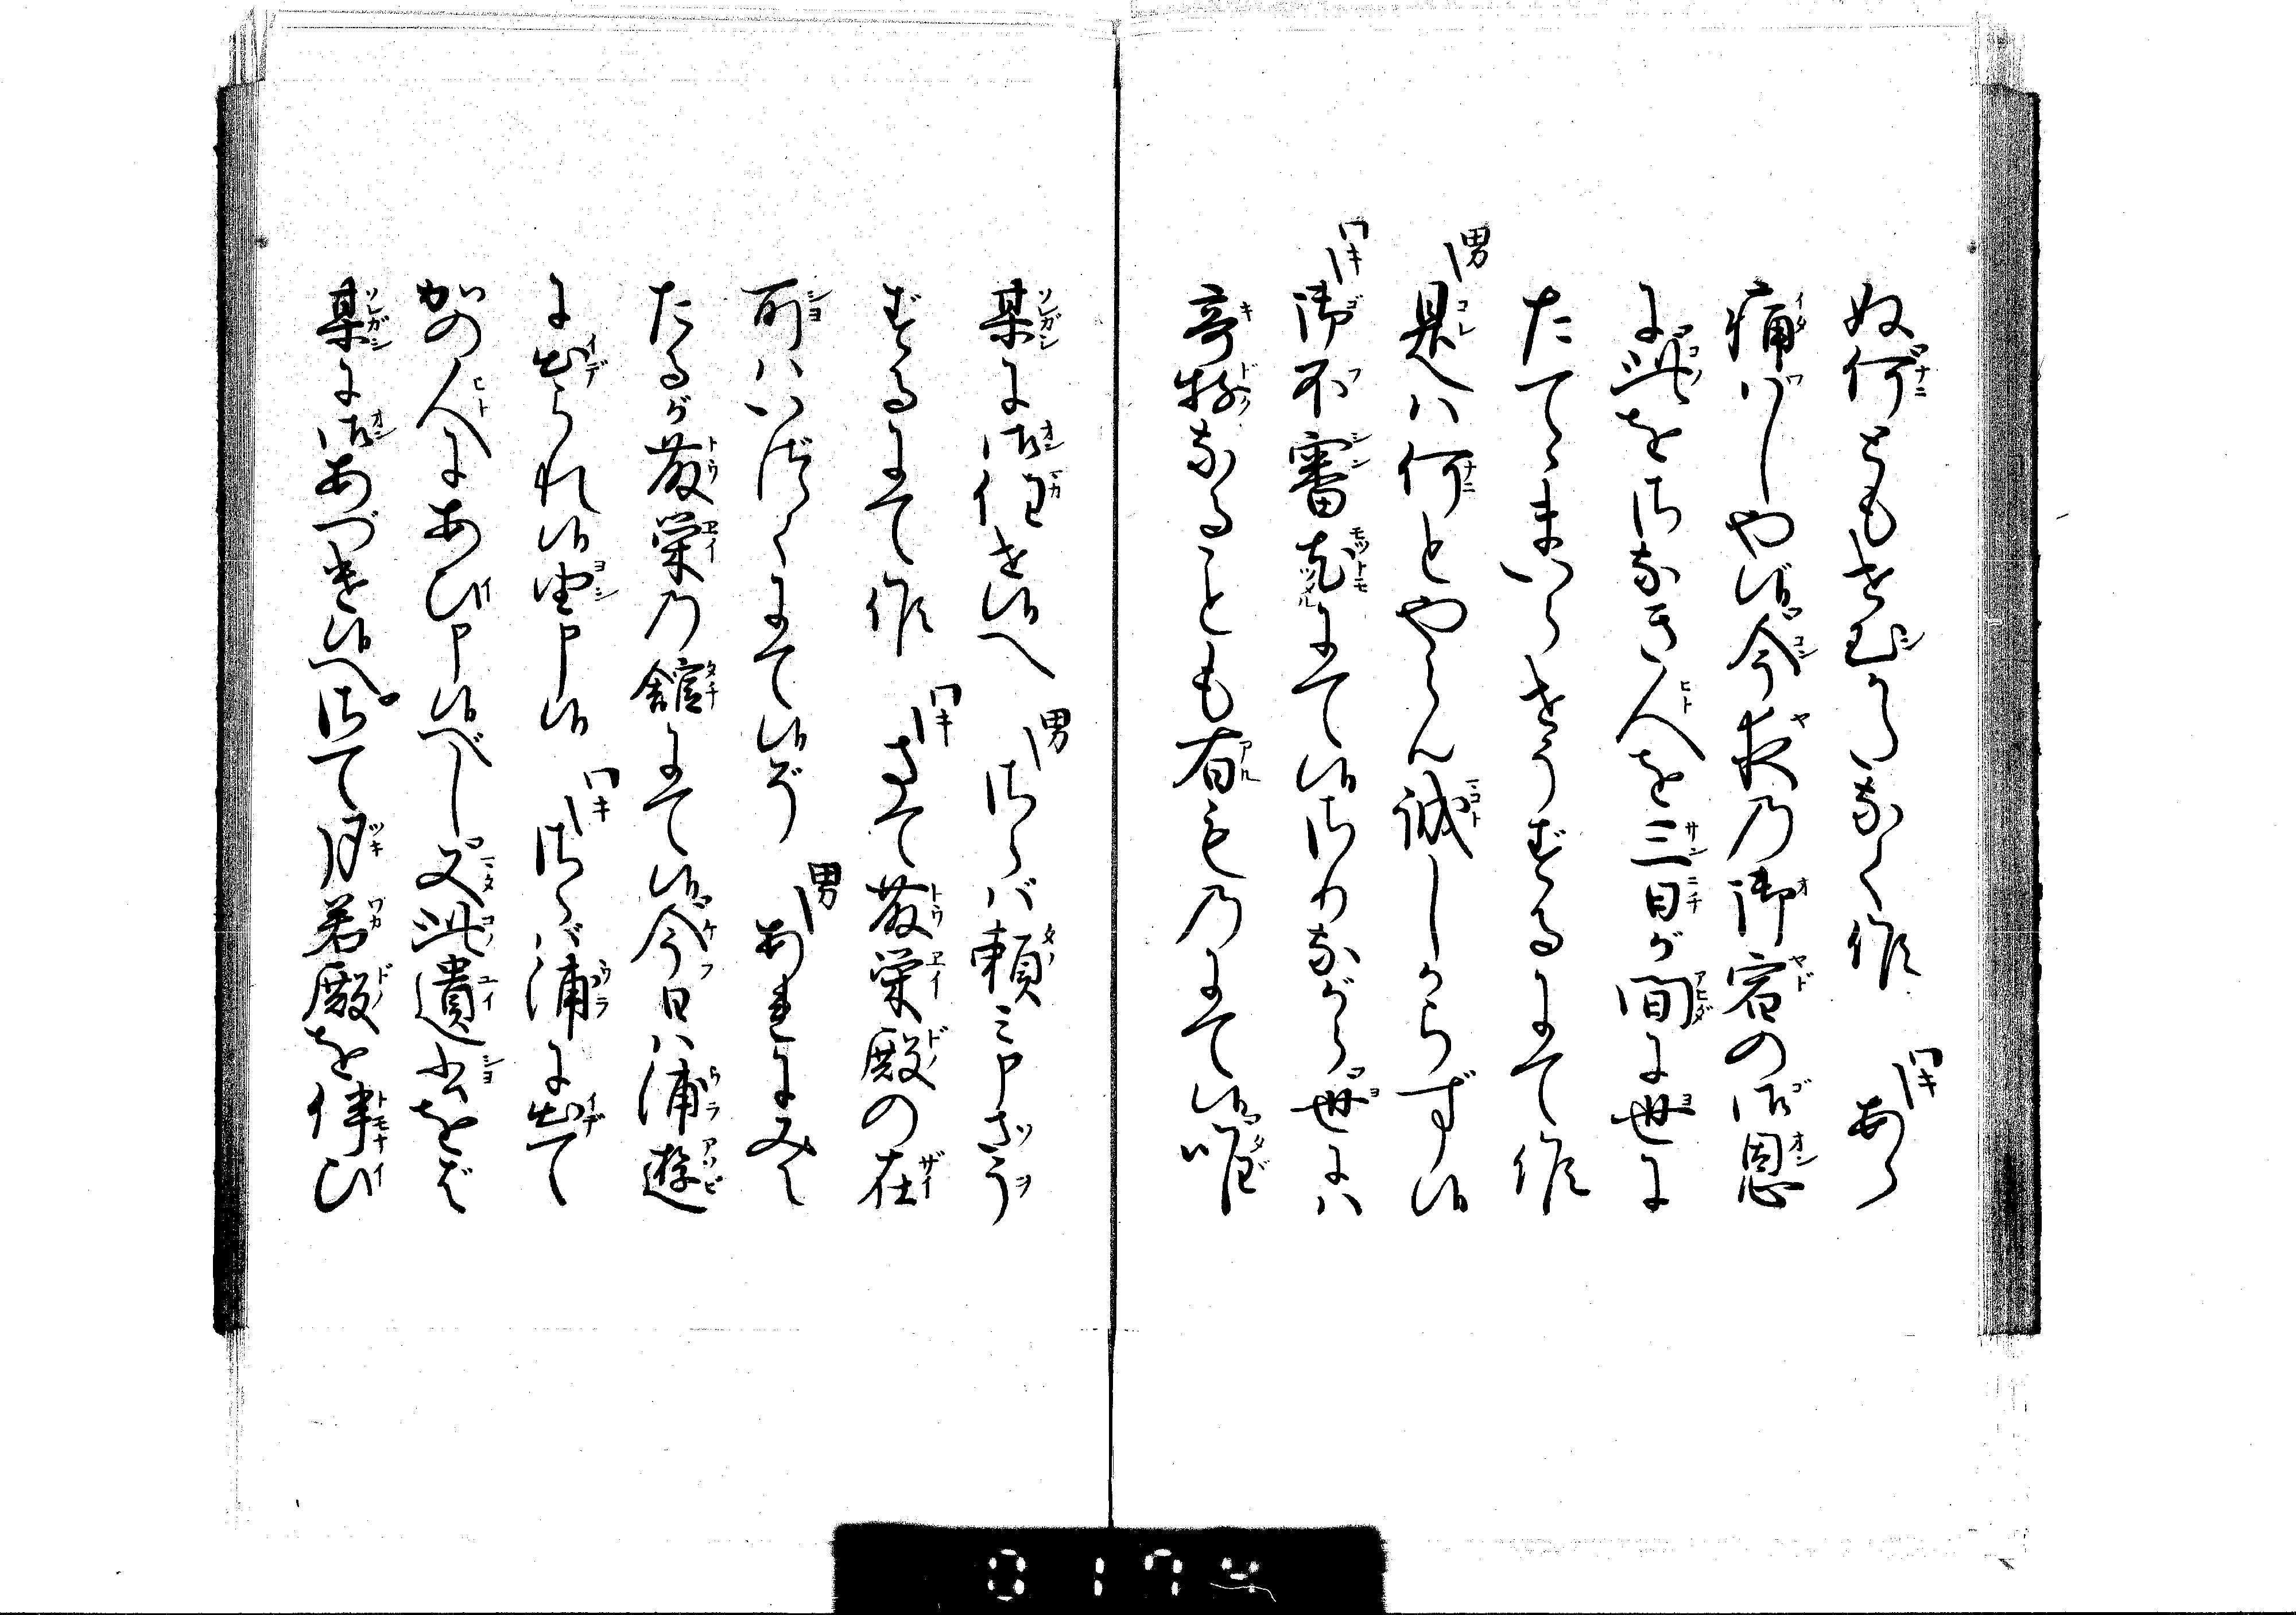 ぬ何ともせむかたなく候　ワキ あら
痛はしや候今夜乃御宿の御恩
に此をさなき人を三日が間に世に
たてゝまいらせうずるにて候
男 是ハ何とやらん誠しからず候
ワキ 御不審尤にて候さりながら世にハ
奇特なることも有ものにて候唯
某に御任せ候へ　男 さらバ頼ミ申さう
ずるにて候　ワキ さて藤栄殿の在
所ハいづくにて候ぞ　男 あれにみえ
たるが藤栄乃舘にて候今日ハ浦遊
に出られ候由申候　ワキ さらバ浦に出て
かの人にあひ申候べし又此遺書をば
某に御あづけ候へさて月若殿を伴ひ
0174